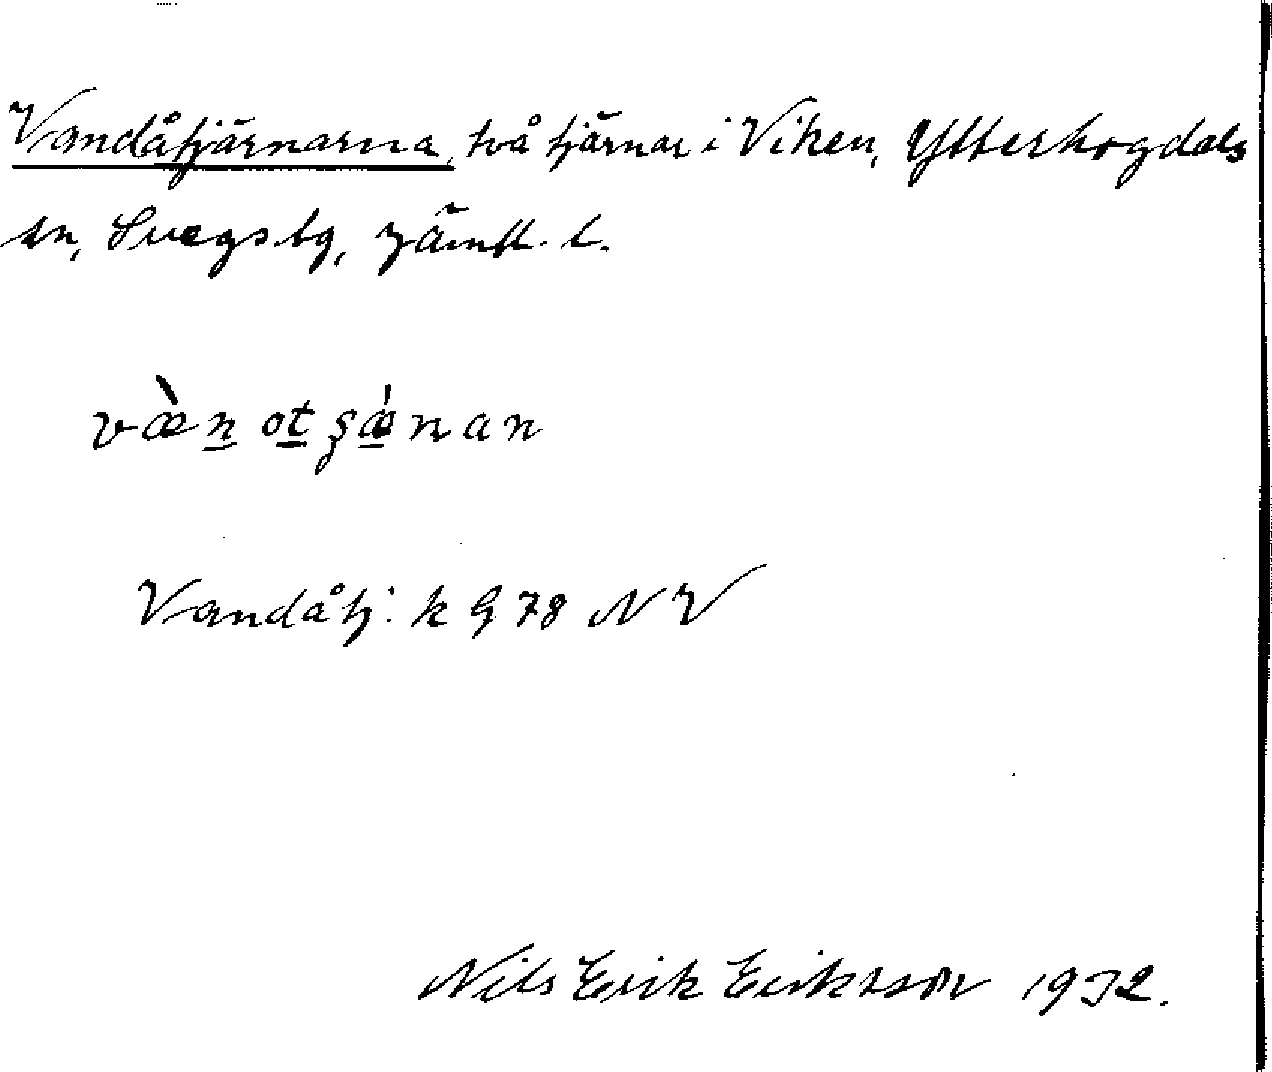 Vandåtjärnarna, två tjärnar i Viken, Ytterhogdals
sn, Svegs tg, Jämtl. l.
væ̀n ot ʂǽnan
Vandåtj: k G 78 N V
Nils Erik Eriksson 1932.